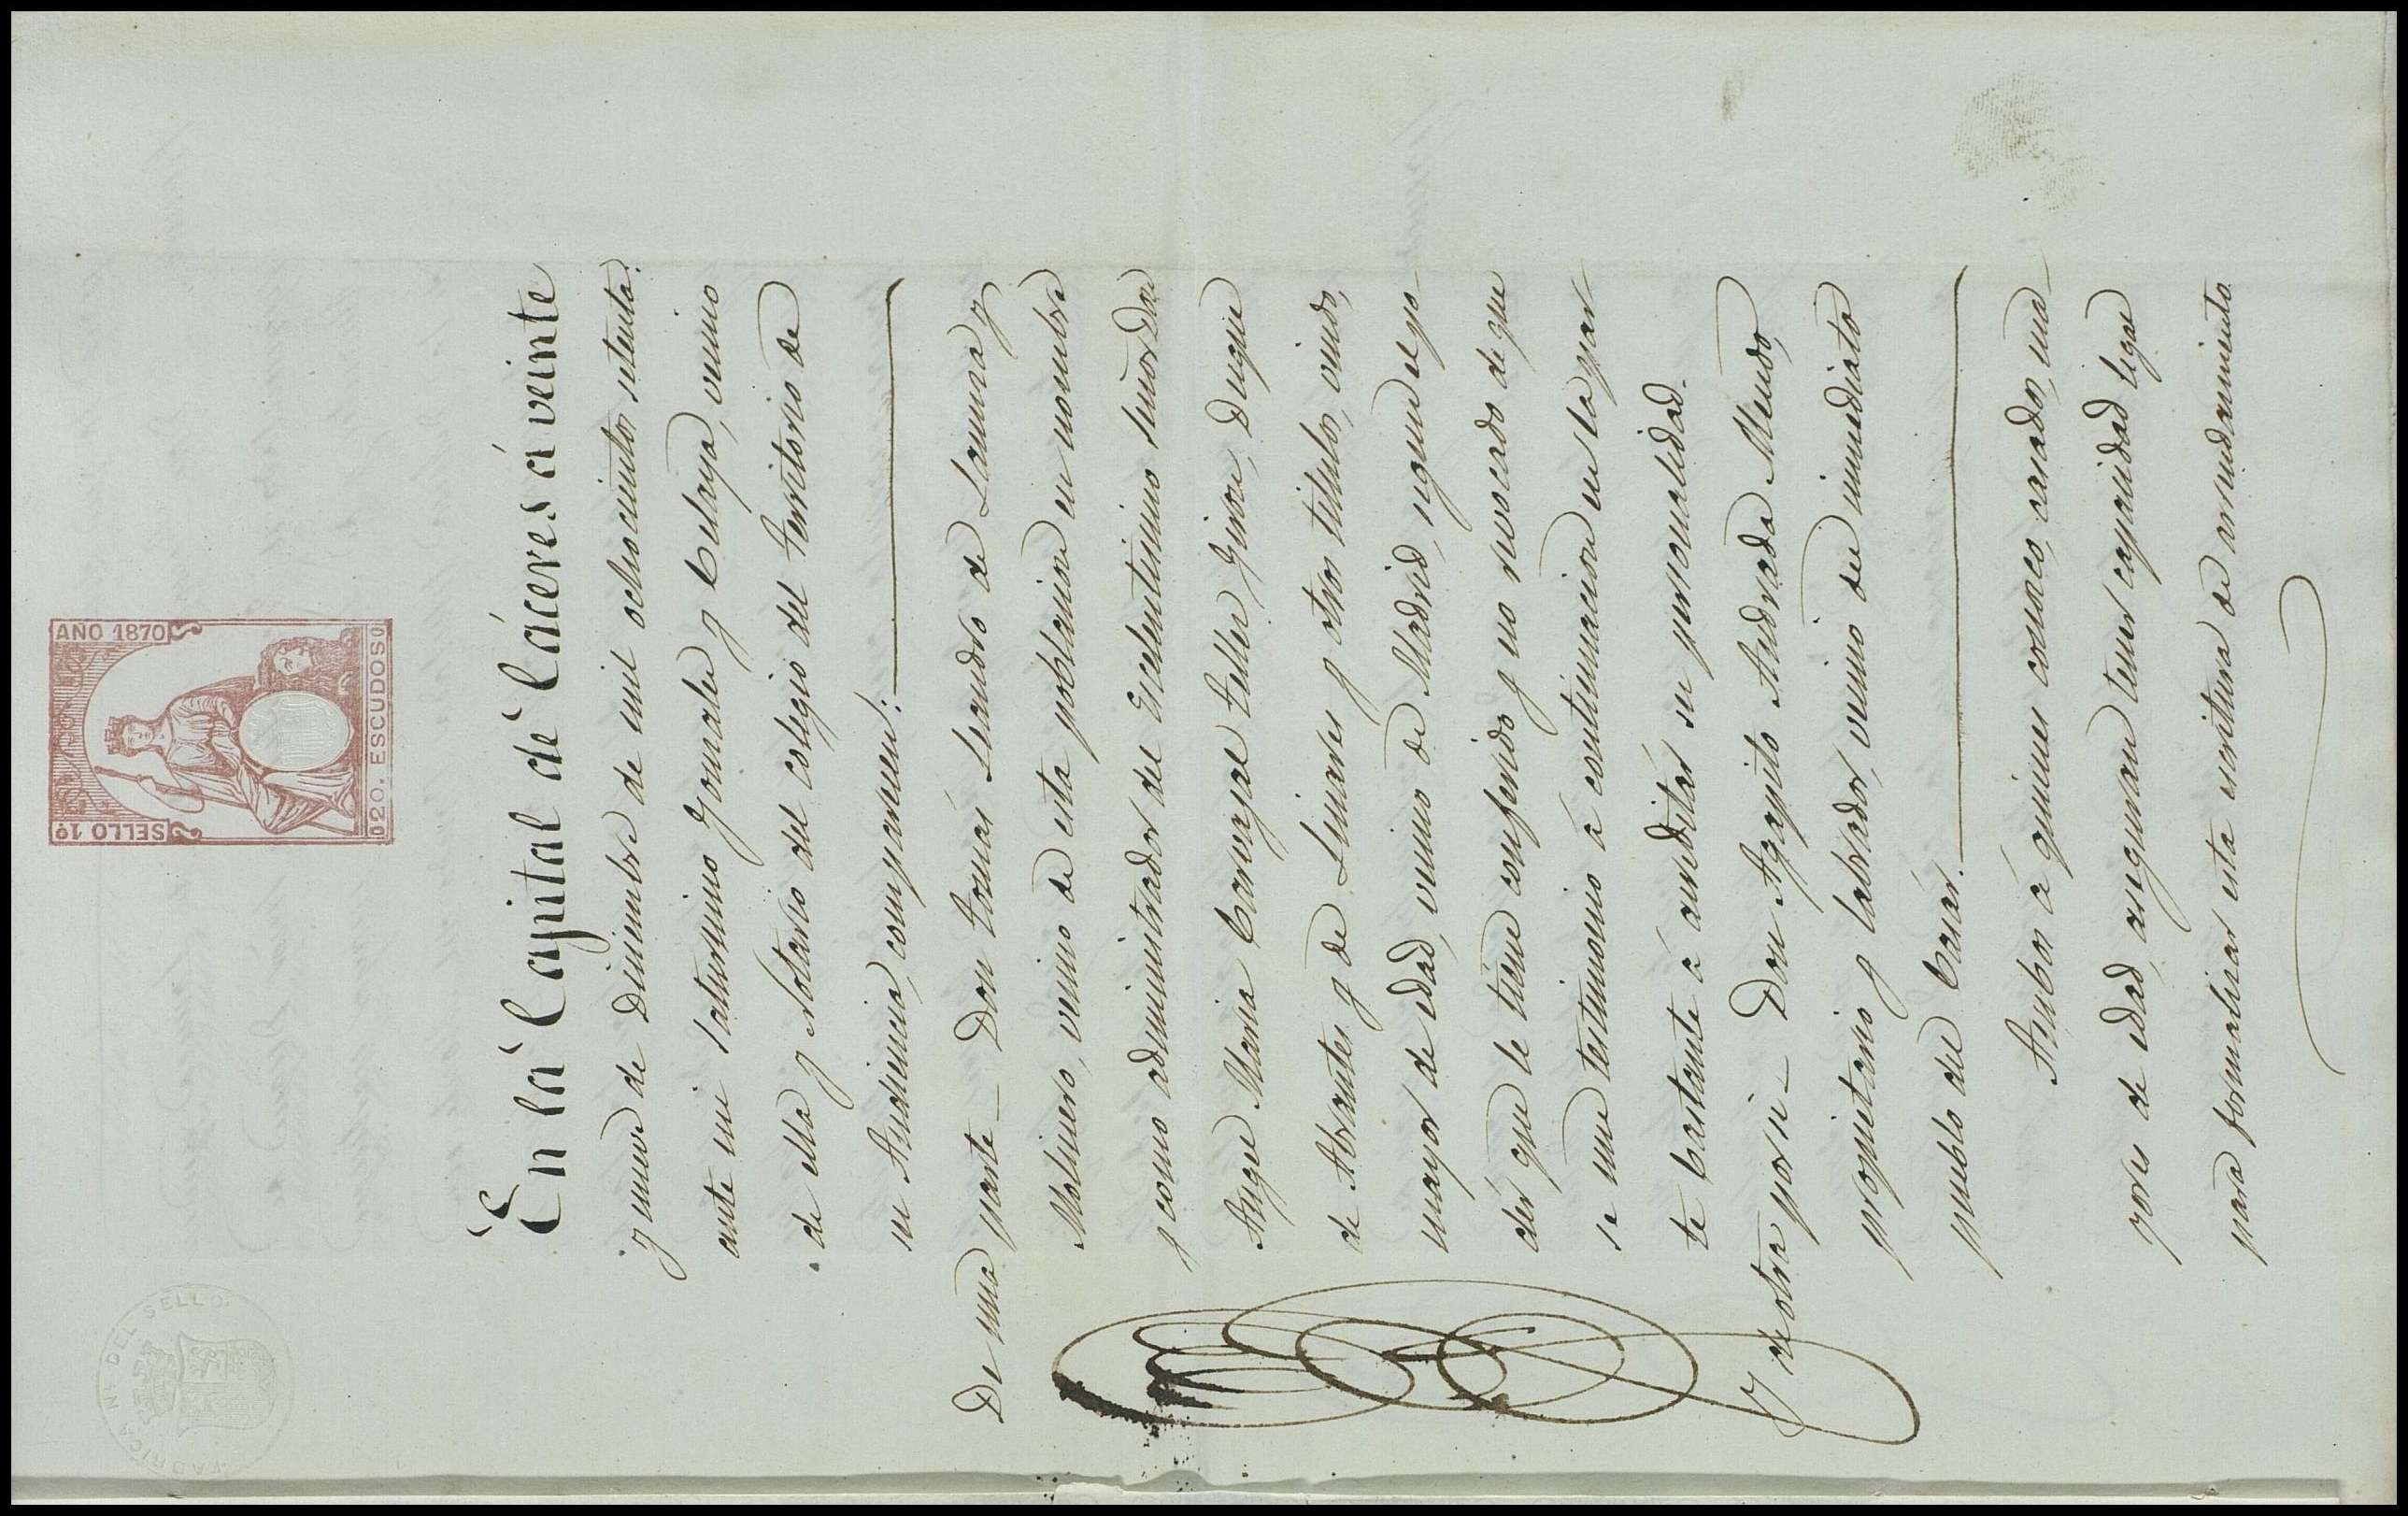 FABRICA Nl. DEL SELLO.
SELLO 1º AÑO 1870
020. ESCUDOS0
En la Capital de Cáceres á veinte
y nueve de Diciembre de mil ochocientos setenta:
ante mi Saturnino Gonzalez y Celaya, vecino
de ella y Notario del colegio del territorio de
su Audiencia, comparecen:
De una parte — Don Tomás Lizandro de Lamura y
Molinero, vecino de esta poblacion en nombre
y como administrador del Excelentisimo Señor Don
Angel Maria Carvajal Tellez Giron, Duque
de Abrantes y de Linares y otros titulos, viudo,
mayor de edad, vecino de Madrid, segun el po-
der que le tiene conferido y no revocado de que
se une testimonio á continuacion en la par-
te bastante á acreditar su personalidad.
Y de otra por si — Don Agapito Andrada Mendo,
propietario y labrador, vecino del inmediato
pueblo del Casar.
Ambos á quienes conozco, casados, ma-
yores de edad, aseguran tener capacidad legal
para formalizar esta escritura de arrendamiento